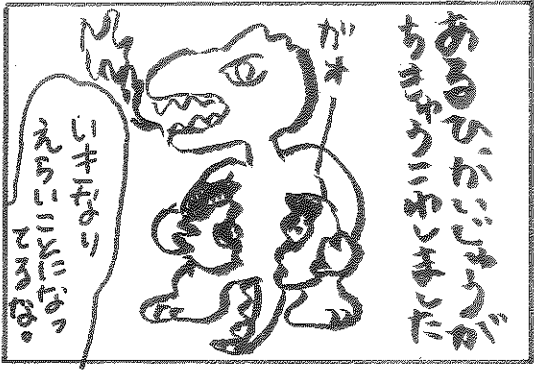 あるひかいじゅうが
ちきゅうこわしました
がオ
いきなり
えらいことになっ
てるな。